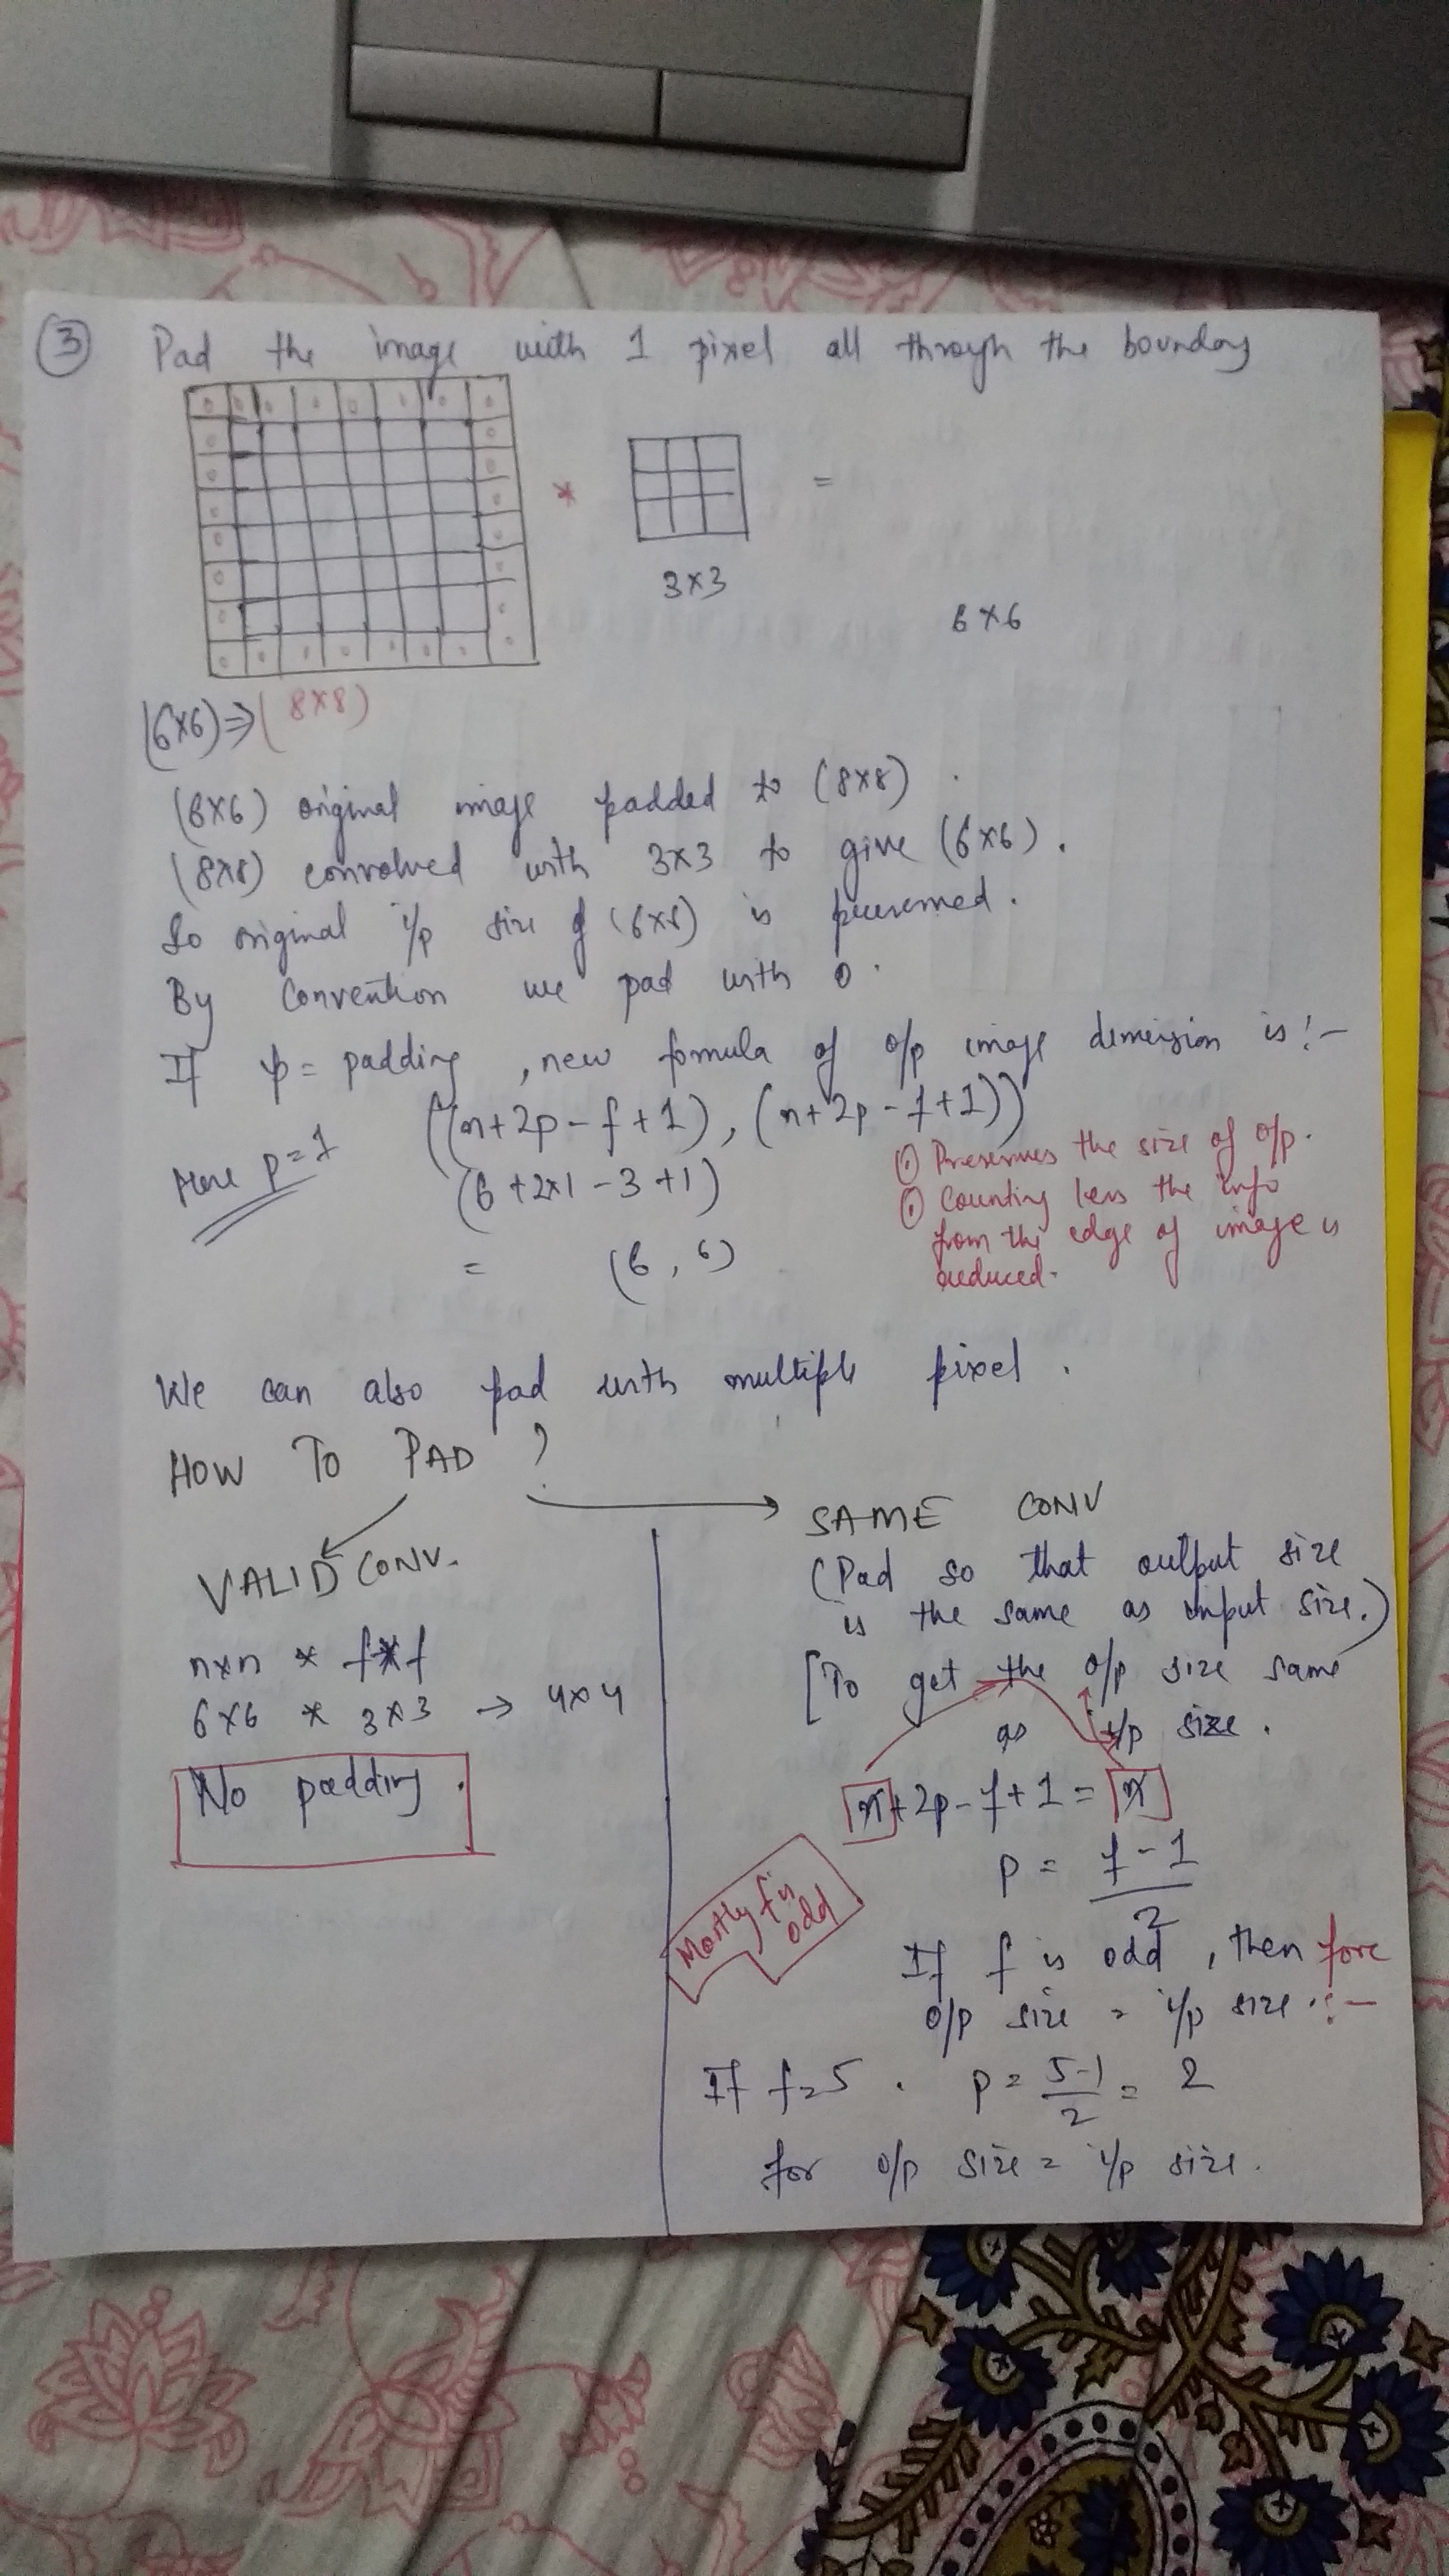 ③ Pad the image with 1 pixel all through the boundary
0 0 0 0 0 0 0 0
* =
3×3
6×6
(6×6) ⇒ (8×8)
(6×6) original image padded to (8×8).
(8×8) convolved with 3×3 to give (6×6).
So original i/p size of (6×6) is preserved.
By Convention we pad with 0.
If p = padding, new formula of o/p image dimension is:-
((n+2p-f+1), (n+2p-f+1))
Here p=1
(6+2×1-3+1)
= (6, 6)
① Preserves the size of o/p.
① Counting less the info
from the edge of image is
reduced.
We can also pad with multiple pixel.
HOW TO PAD ?
VALID CONV.
n×n * f*f
6×6 * 3×3 → 4×4
No padding.
SAME CONV
(Pad so that output size
is the same as input size.)
[To get the o/p size same
as i/p size.
n+2p-f+1 = n
p = f-1
2
Mostly f is
odd
If f is odd, then for
o/p size = i/p size :-
If f=5. p = 5-1/2 = 2
for o/p size = i/p size.